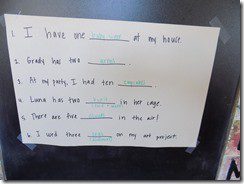 1. I have one baby sister at my house.
2. Grady has two
3. At my party, I had ten cupcakes.
4. Luna has two in her cage.
5. There are five clouds in the air!
6. I used three on my art project.